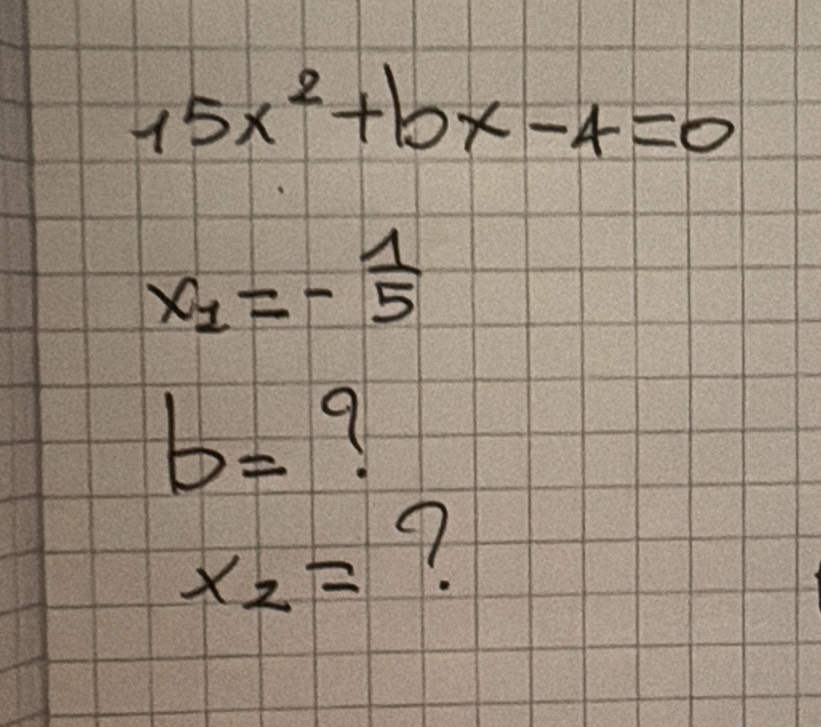 15x² + bx - 4 = 0
x₁ = - 1/5
b = ?
x₂ = ?